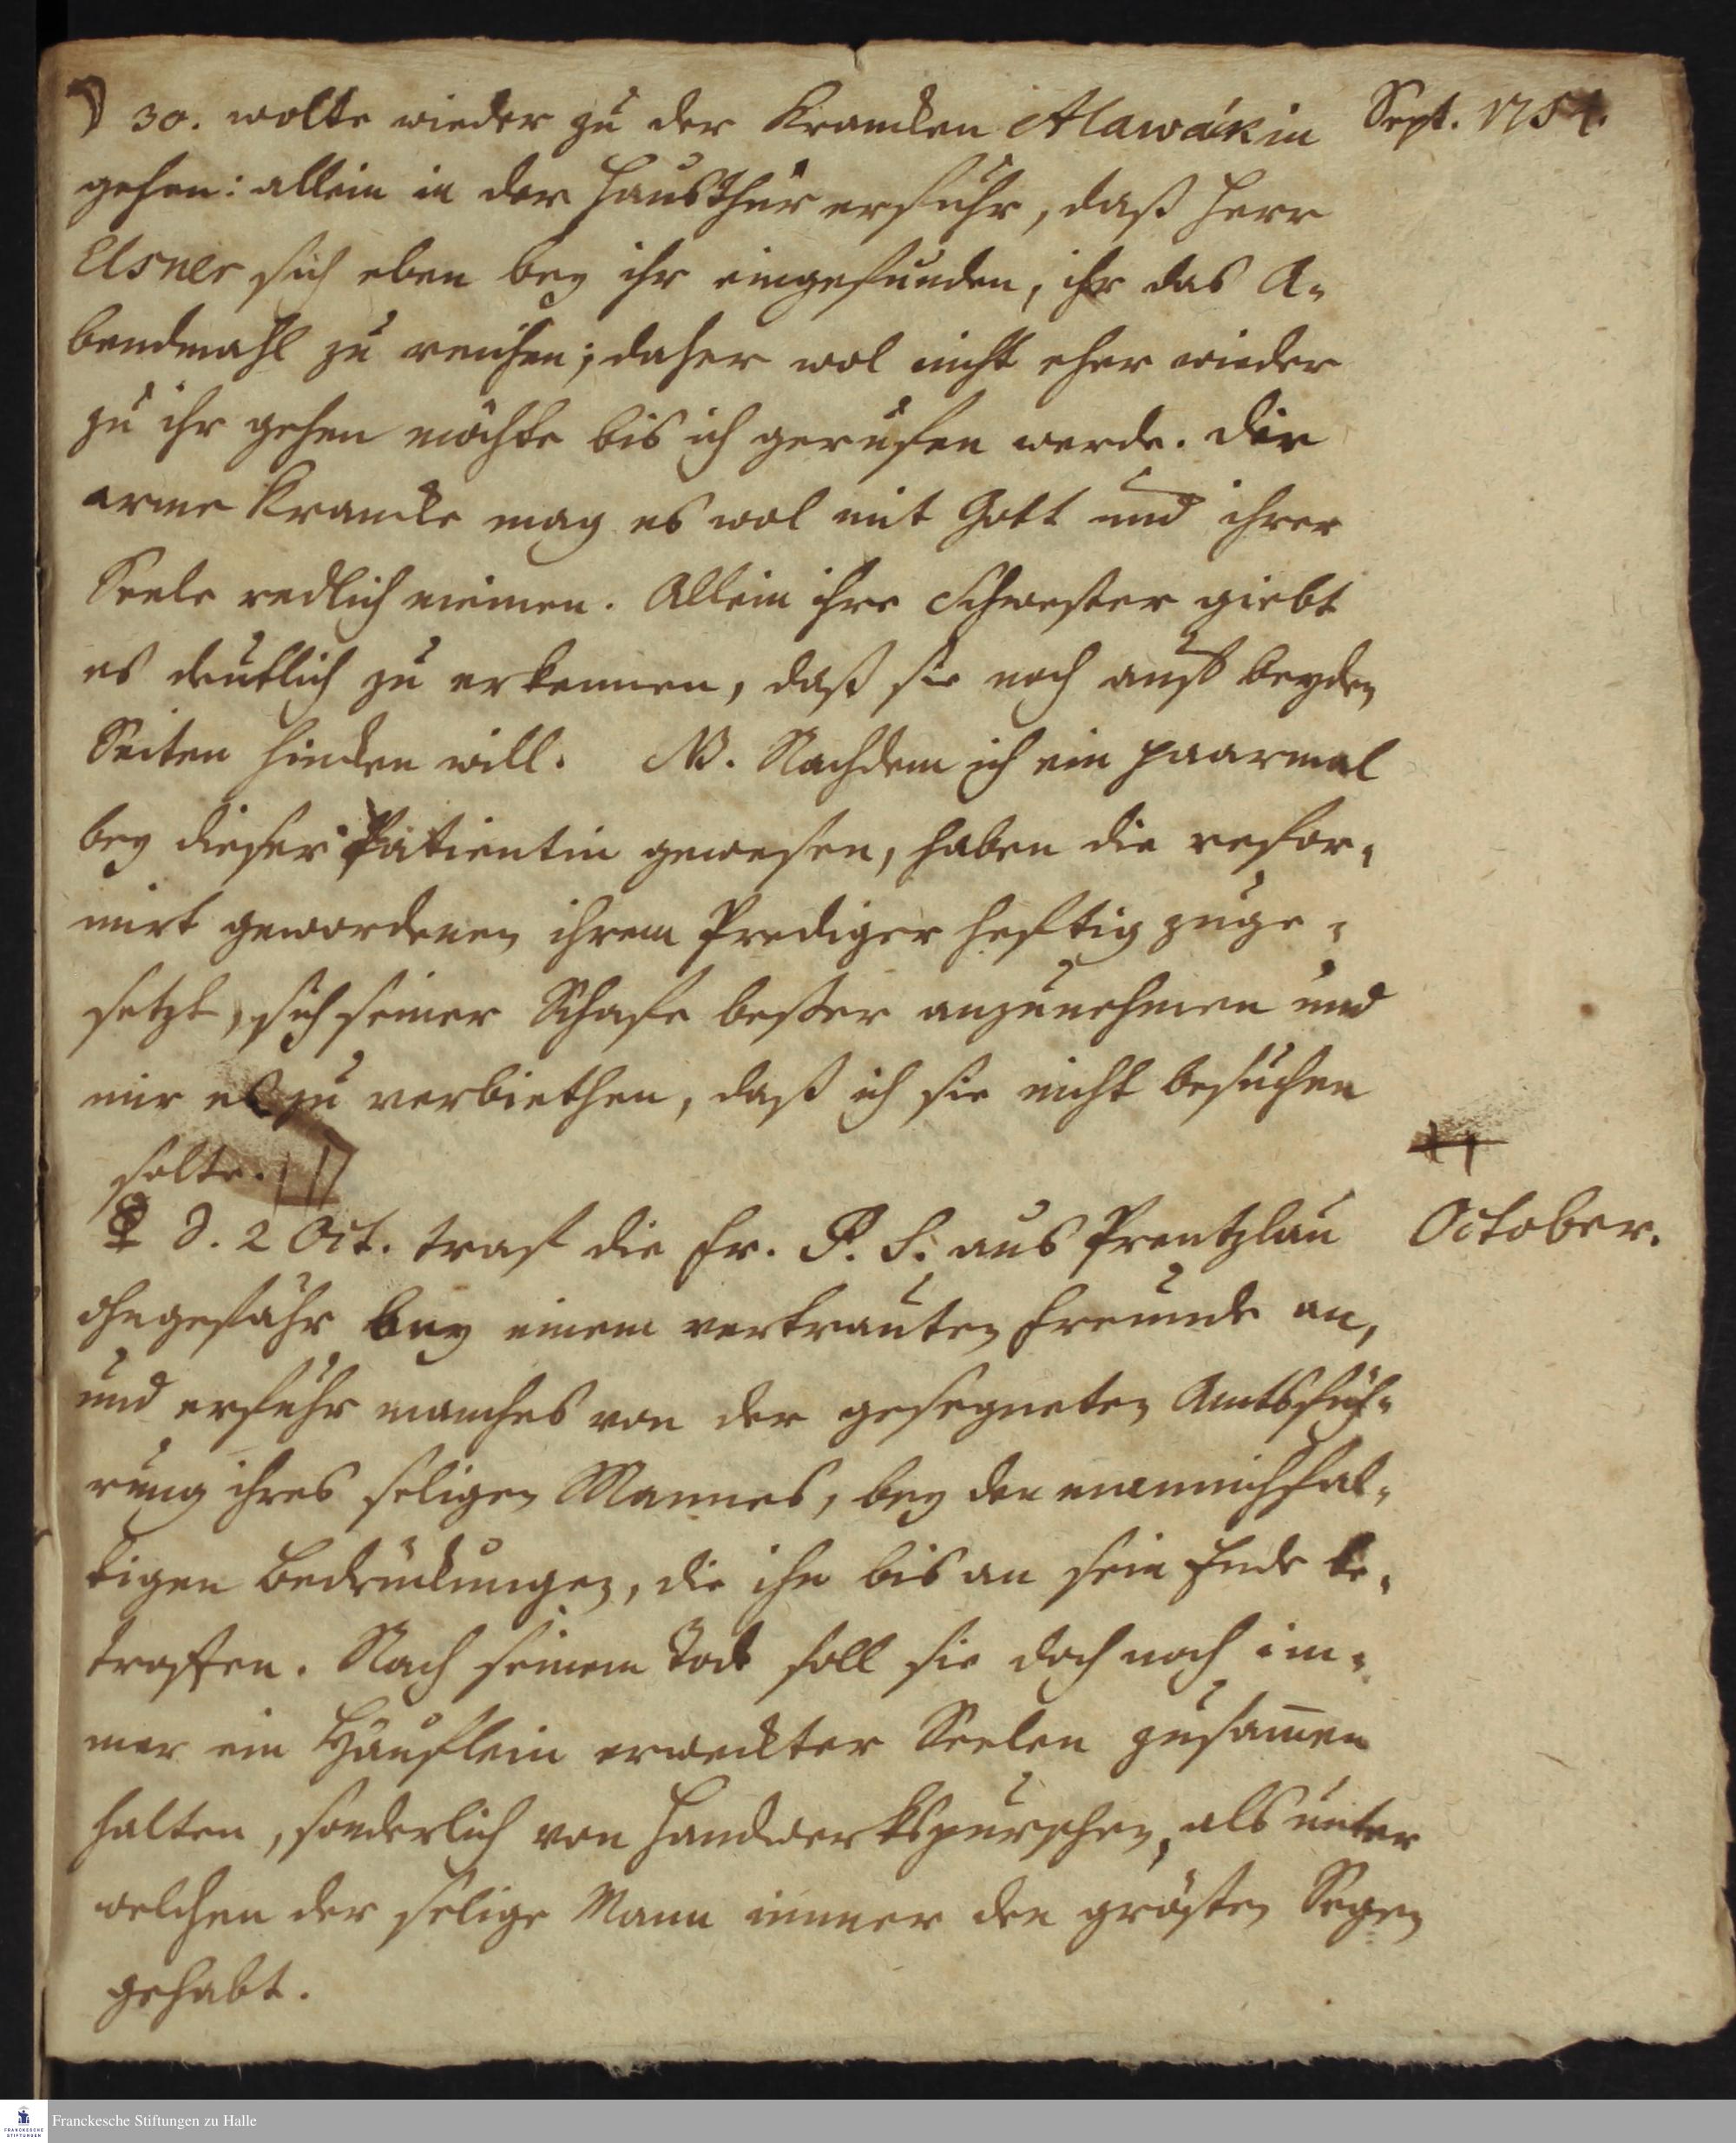 ☽ 30. wolte wieder zu der Krancken Alawákin
Sept. 175
gehen: allein in der Hausthür erfuhr, daß Herr
Elsner sich eben bey ihr eingefunden, ihr das A-
bendmahl zu reichen; daher wol nicht eher wieder
zu ihr gehen möchte bis ich gerufen werde. Die
arme Krancke mag es wol mit Gott und ihrer
Seele redlich meinen. Allein ihre Schwester giebt
es deutlich zu erkennen, daß sie noch auf beyden
Seiten hincken will. NB. Nachdem ich ein paarmal
bey dieser Patientin gewesen, haben die refor-
mirt gewordenen ihrem Prediger heftig zuge-
setzt, sich seiner Schafe beßer anzunehmen und
mir es zu verbiethen, daß ich sie nicht besuchen
solte.
♀ d. 2 Oct. traf die Fr. P. S. aus Prentzlau
October.
ohngefähr bey einem vertrauten Freunde an,
und erfuhr manches von der gesegneten Amtsfüh-
rung ihres seligen Mannes, bey den mannichfal-
tigen Bedrückungen, die ihn bis an sein Ende be-
troffen. Nach seinem Tod soll sie doch noch im-
mer ein Häuflein erweckter Seelen zusam̄en
halten, sonderlich von Handwerkspurschen, als unter
welchen der selige Mann immer den grösten Segen
gehabt.
Franckesche Stiftungen zu Halle
FRANCKESCHE
STIFTUNGEN